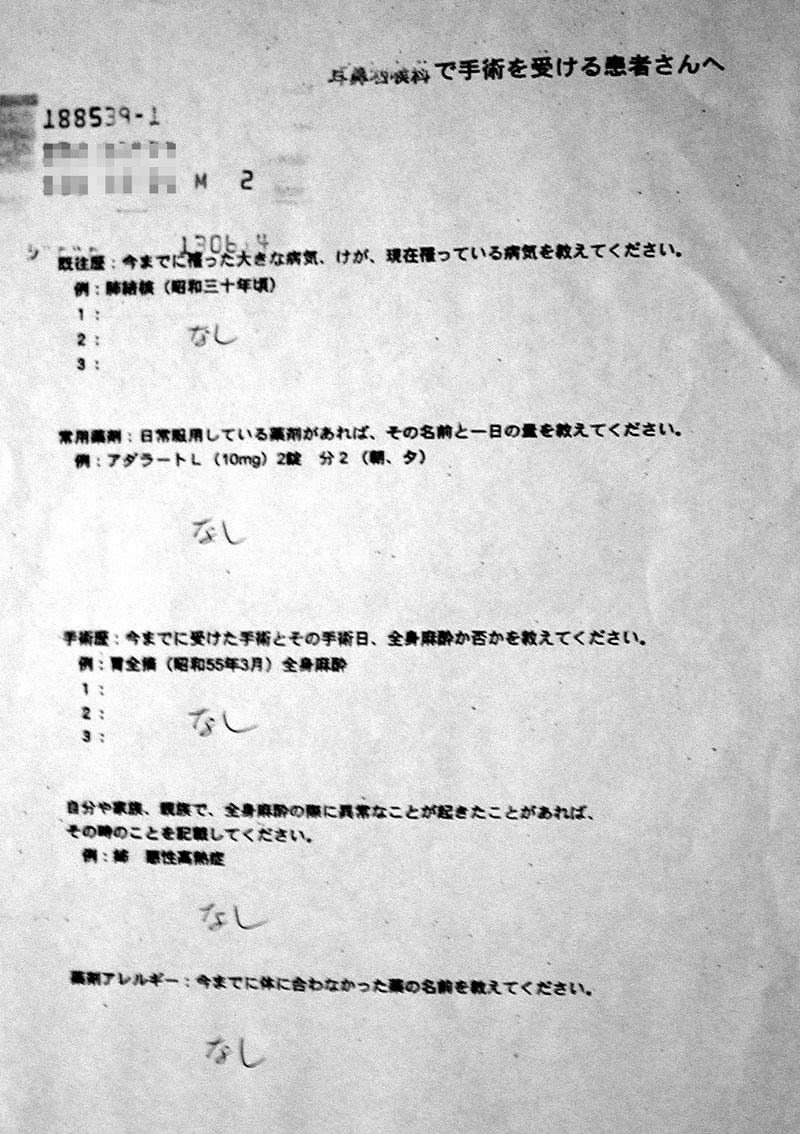 耳鼻咽喉科で手術を受ける患者さんへ
188539-1
M 2
1306.4
既往歴：今までに罹った大きな病気、けが、現在罹っている病気を教えてください。
例：肺結核（昭和三十年頃）
1：
2：
なし
3：
常用薬剤：日常服用している薬剤があれば、その名前と一日の量を教えてください。
例：アダラートL（10mg）2錠　分2（朝、夕）
なし
手術歴：今までに受けた手術とその手術日、全身麻酔か否かを教えてください。
例：胃全摘（昭和55年3月）全身麻酔
1：
2：
なし
3：
自分や家族、親族で、全身麻酔の際に異常なことが起きたことがあれば、
その時のことを記載してください。
例：姉　悪性高熱症
なし
薬剤アレルギー：今までに体に合わなかった薬の名前を教えてください。
なし